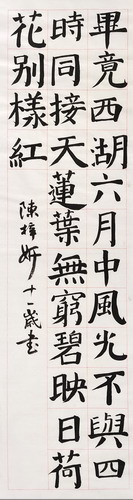 畢竟西湖六月中風光不與四
時同接天蓮葉無窮碧映日荷
花别樣紅
陳梓妍十一歲書